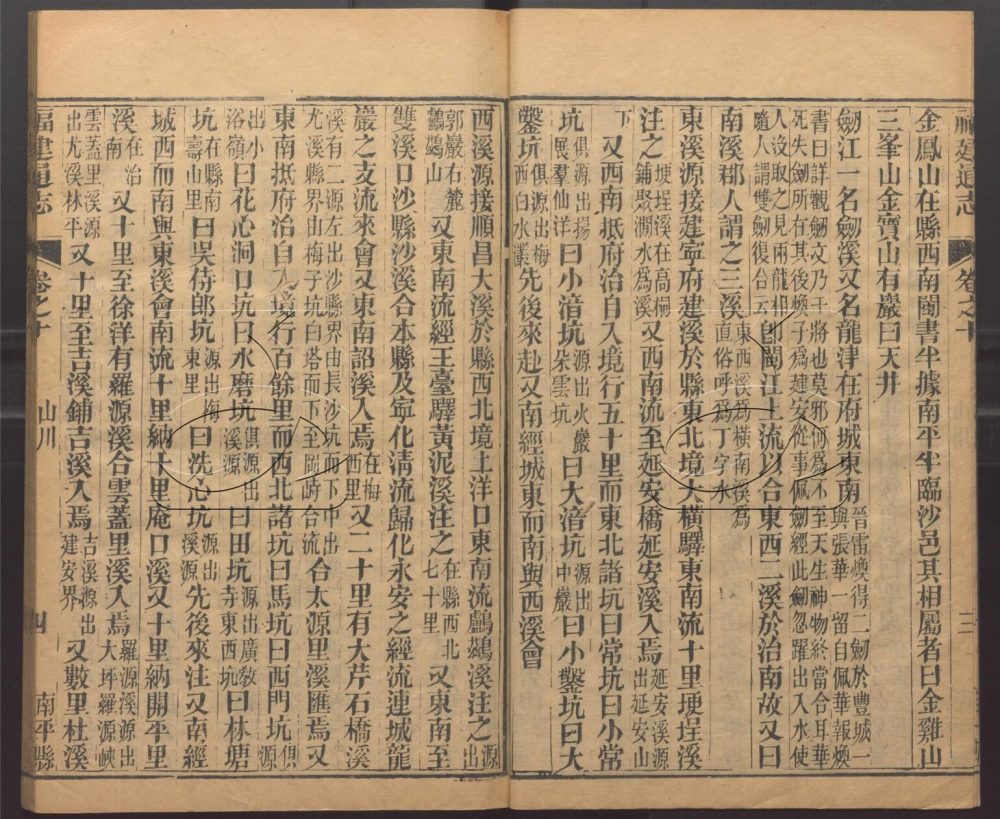 福建通志 卷之十 三
金鳳山在縣西南閩書半據南平半臨沙邑其相屬者曰金雞山
三峯山金寶山有巖曰天井
劒江一名劒溪又名龍津在府城東南晉雷煥得二劒於豐城一與張華一留自佩華報煥
書曰詳觀劒文乃干將也莫邪何爲不至天生神物終當合耳華
死失劒所在其後煥子爲建安從事佩劒經此劒忽躍出入水使
人沒取之見兩龍相隨人謂雙劒復合云卽閩江上流以合東西二溪於治南故又曰
南溪郡人謂之三溪東西溪爲橫南溪爲直俗呼爲丁字水
東溪源接建寧府建溪於縣東北境大橫驛東南流十里埂埕溪
注之埂埕溪在高桐鋪聚澗水爲溪又西南流至延安橋延安溪入焉延安溪源出延安山
下又西南抵府治自入境行五十里而東北諸坑曰常坑曰小常
坑俱源出揚展羣仙洋曰小湇坑源出火巖朵雲坑曰大湇坑源出中巖曰小鑿坑曰大
鑿坑俱源出梅西白水漈先後來赴又南經城東而南與西溪會
西溪源接順昌大溪於縣西北境上洋口東南流鸕鷀溪注之源出
郭巖右麓鸕鷀山又東南流經王臺驛黃泥溪注之在縣西北七十里又東南至
雙溪口沙縣沙溪合本縣及寧化淸流歸化永安之經流連城龍
巖之支流來會又東南詔溪入焉在梅西里又二十里有大芹石橋溪
溪有二源左出沙縣界由長沙坑而下中出尤溪縣界由梅子坑白塔而下至岡蒔合流合太源里溪匯焉又
東南抵府治自入境行百餘里而西北諸坑曰馬坑曰西門坑俱源
出小浴嶺曰花心洞口坑曰水磨坑俱源出溪源曰田坑源出廣敎寺東西坑曰林塘
坑在縣南壽山里曰吳侍郎坑源出梅東里曰洗心坑源出溪源先後來注又南經
城西而南與東溪會南流十里納十里庵口溪又十里納開平里
溪在治南又十里至徐洋有羅源溪合雲蓋里溪入焉羅源溪源出大坪羅源峽
雲蓋里溪源出尤溪林平又十里至吉溪鋪吉溪入焉吉溪源出建安界又數里杜溪
福建通志 卷之十 山川 四 南平縣